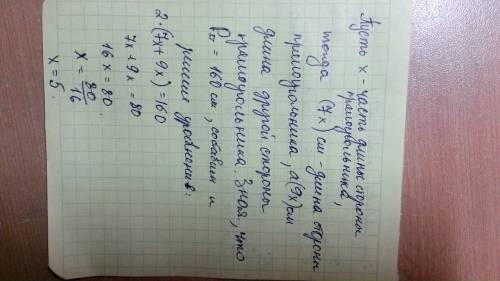 Пусть x - часть длины стороны
прямоугольника,
тогда (7x) см - длина стороны
прямоугольника, а (9x) см
длина другой стороны
прямоугольника. Зная, что
P = 160 см, и
решения уравнение:
2·(7x+9x)=160
7x+9x=80
16x=80.
x=80/16
x=5.